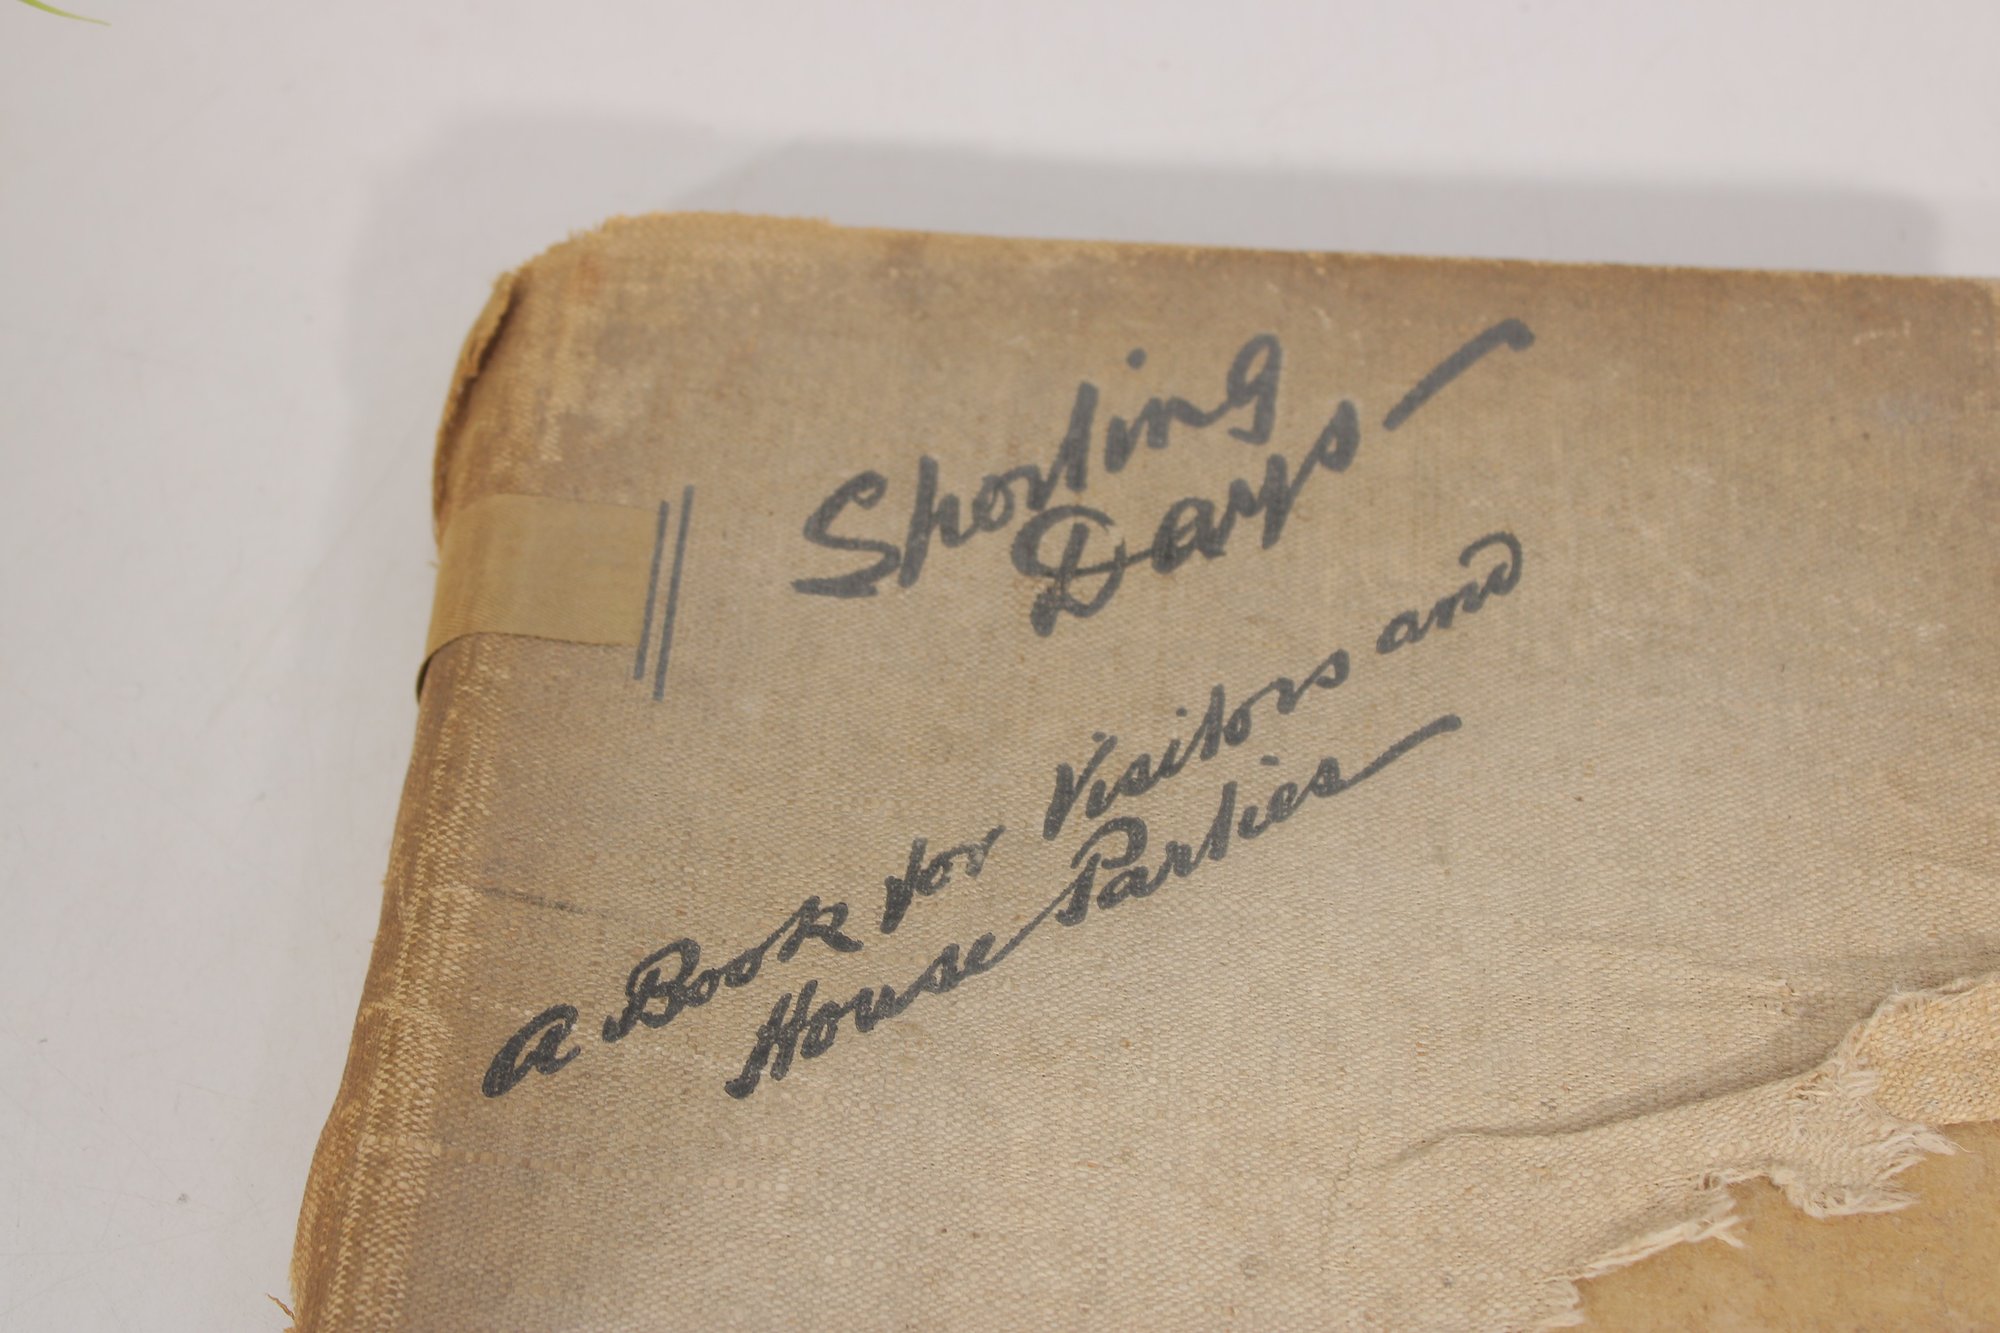 Sporting
Days
a Book for Visitors and
House Parties